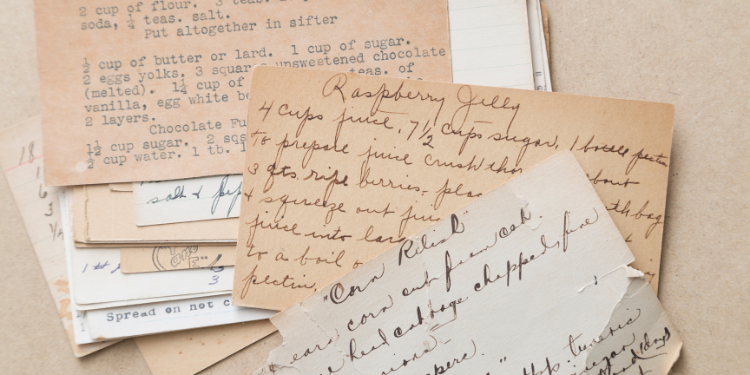 2 cup of flour. 3 teas.
soda, ¼ teas. salt.
Put altogether in sifter
½ cup of butter or lard. 1 cup of sugar.
2 eggs yolks. 3 squar unsweetened chocolate
(melted). 1¼ cup of teas. of
vanilla, egg white be
2 layers.
Chocolate Fu
1½ cup sugar. 2 sqs
½ cup water. 1 tb. 1
Raspberry Jelly
4 cups juice, 7½ cups sugar, 1 bottle pectin
to prepare juice crush tho about
3 qts. ripe berries- plac
& squeeze out jui th bag
juice into lar
to a boil
pectin,
salt & pep
18
1
6
3
¼
1
3
Spread on not c
"Corn Relish"
ears corn cut from cob.
head cabbage chopped fine
ions-
pers.
tsp. tumeric